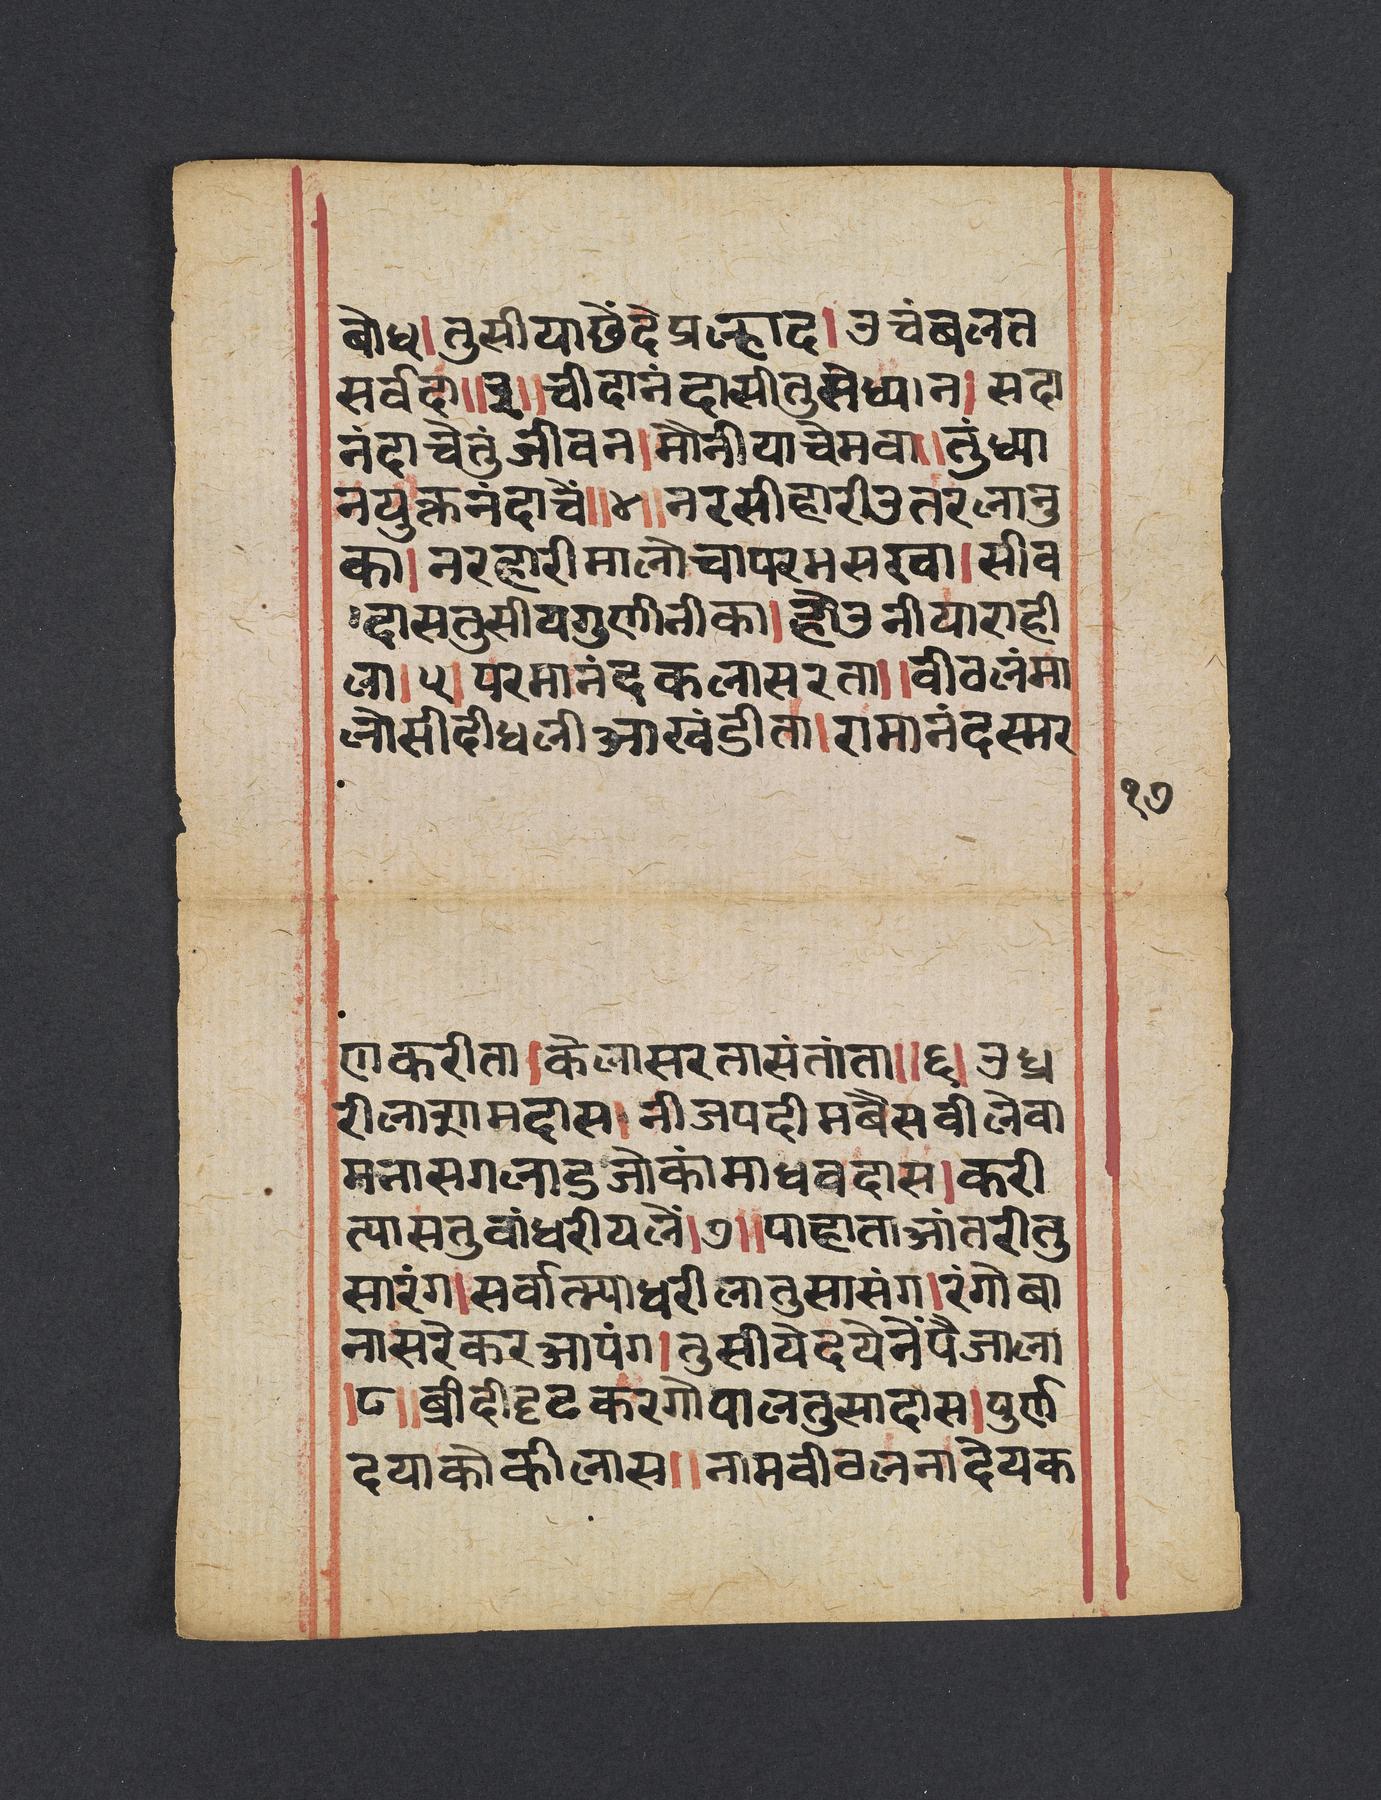 बोध।तुसीयाछेंदेप्रल्हाद।उचंबलत
सर्वदा॥३॥चीदानंदासीतुसेध्यान।सदा
नंदाचेतुंजीवन।मौनीयाचेमवा॥तुंध्या
नयुक्तनंदाचें॥४॥नरसीहारीउतरलानु
का।नरहारीमालोचापरमसखा।सीव
दासतुसीयगुणीनीका।होउनीयाराही
ला।५।परमानंदकलासरता॥वीवलंमा
लोसीदीधलीआखंडीता।रामानंदस्मर
१७
णकरीता।कैलासरतासंतांता॥६।उध्र
रीलारामदास।नीजपदीमबैसवीलेवा
मनासगलाडजोकांमाधवदास।करी
त्यासतुवांधरीयलें।७॥पाहाताआंतरीतु
सारंग।सर्वात्म्याधरीलातुसासंग।रंगोबा
नासरेकरआपंग।तुसीयेदयेनेंपैजाला
।८॥ब्रीदीदृटकरगोपालतुसादास।पुर्ण
दयाकोकीलास॥नामवीवलनादेयक